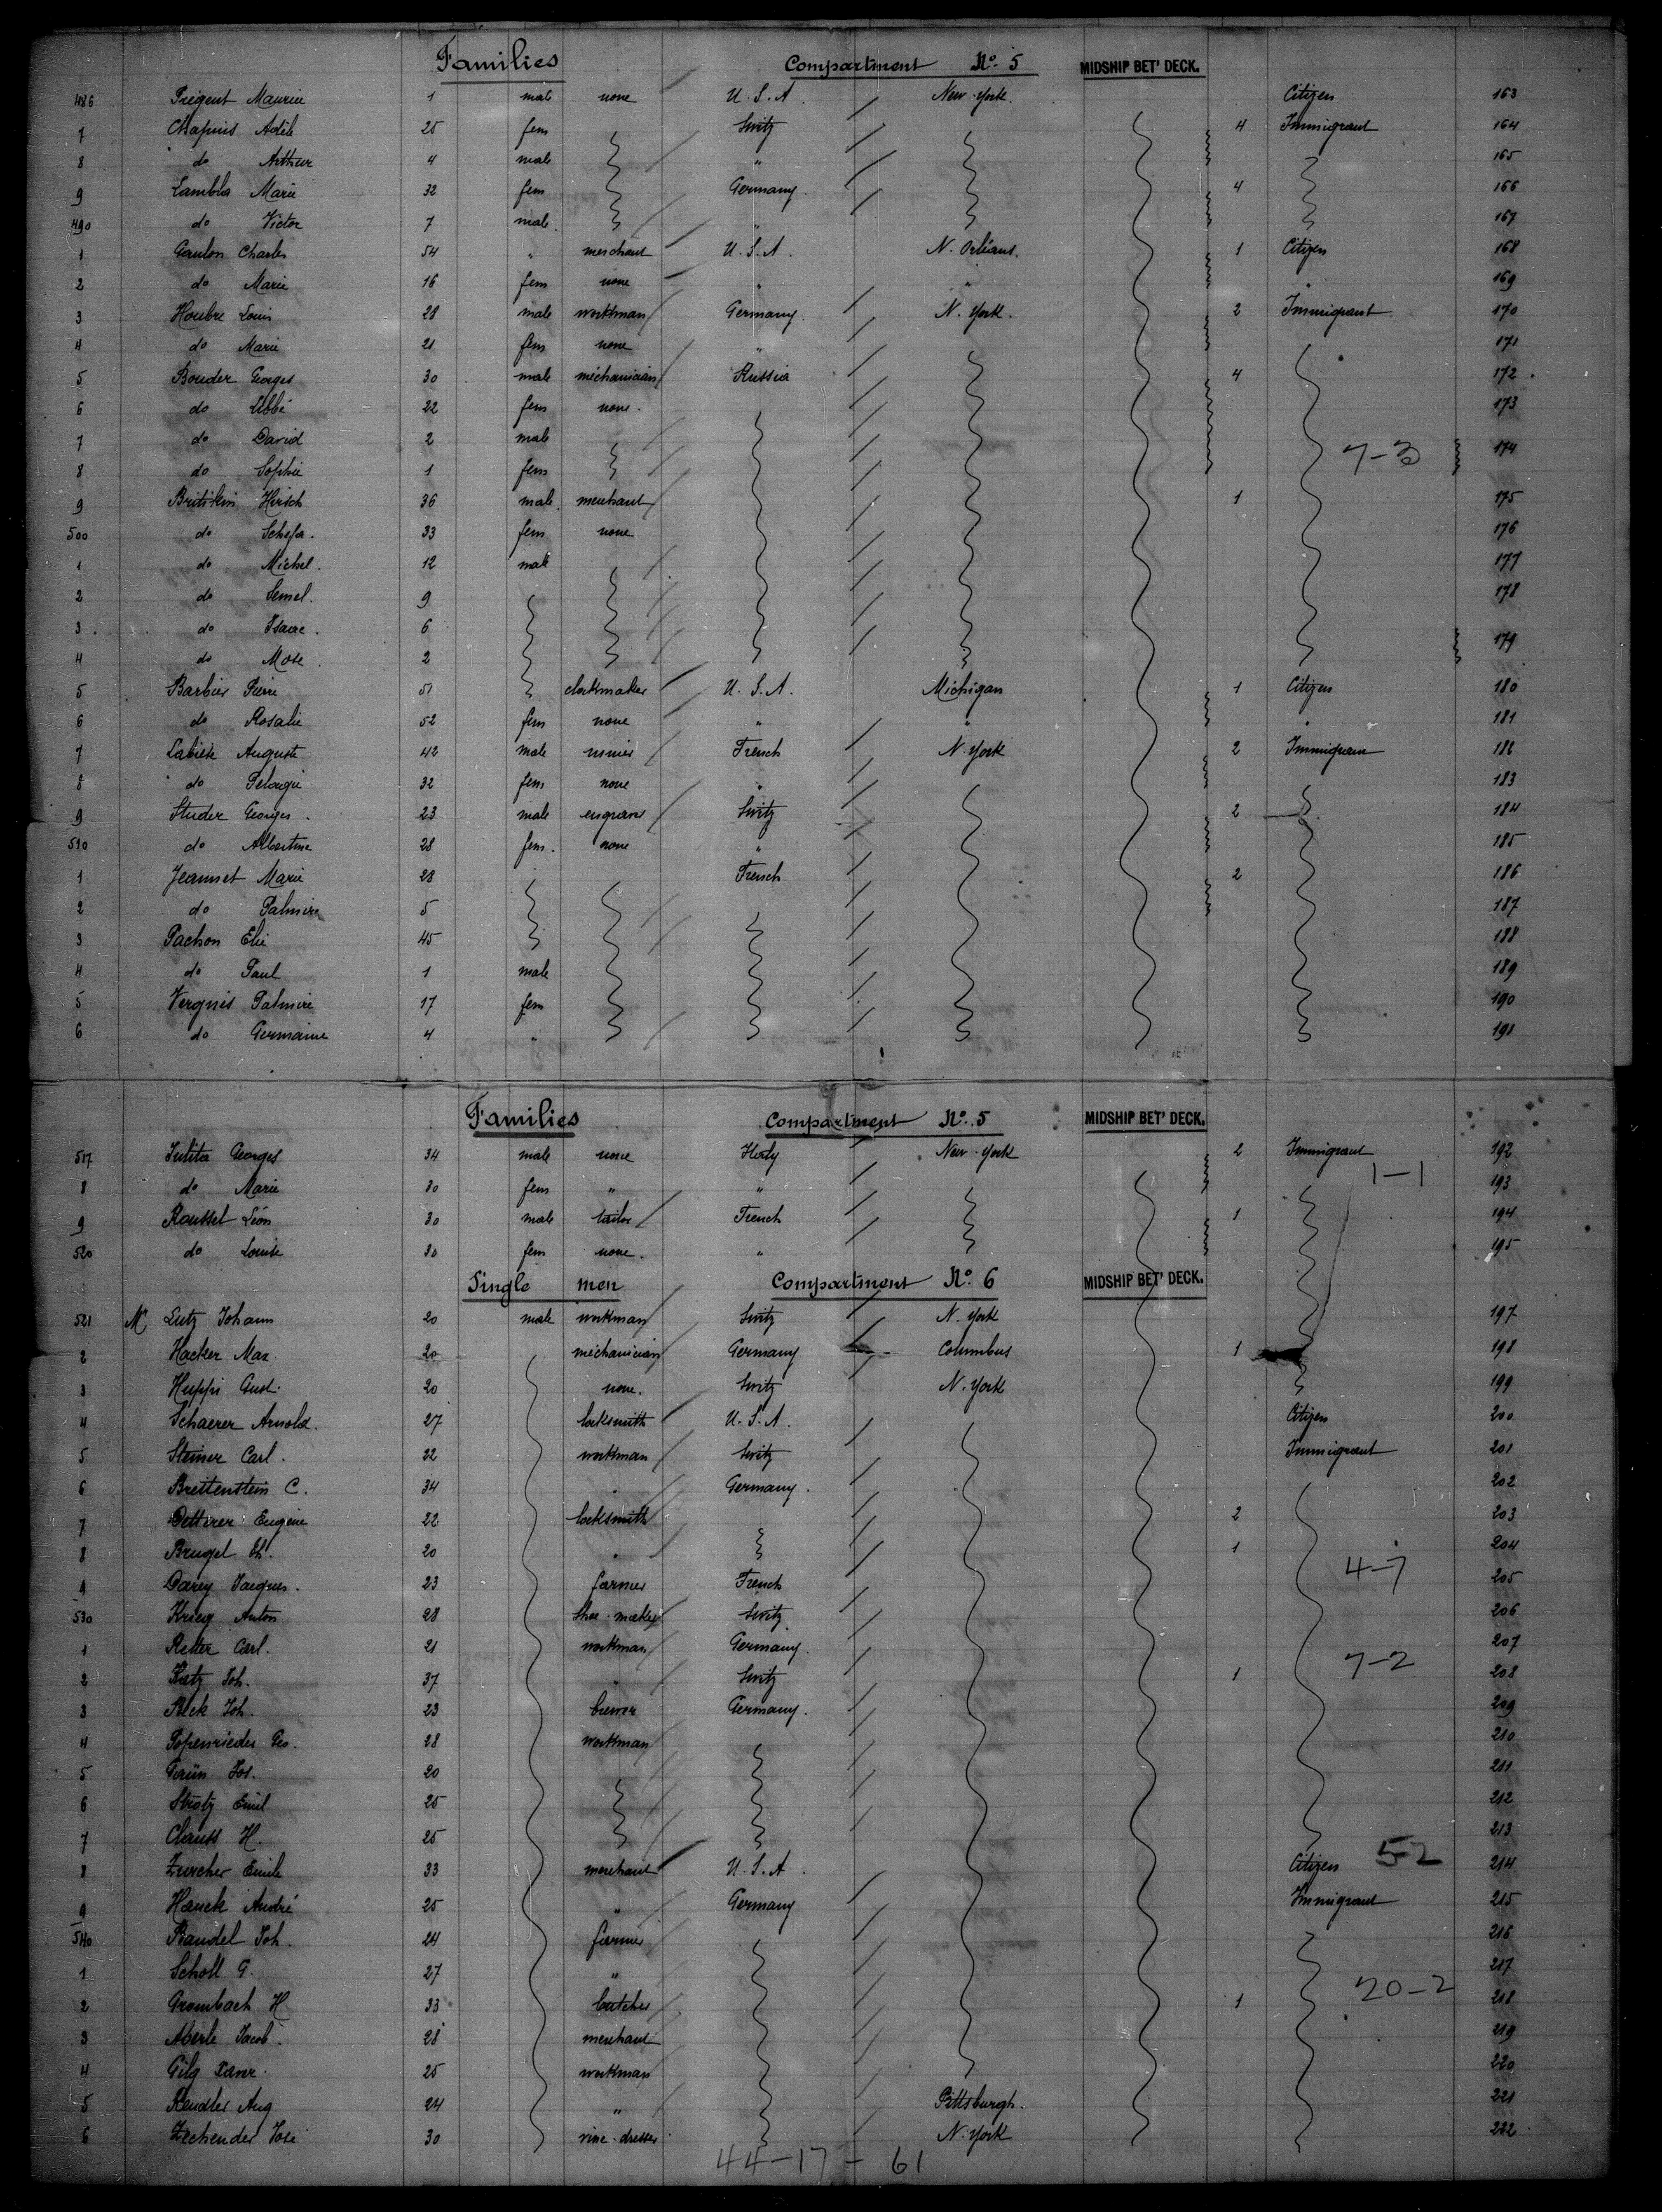 Families Compartment No. 5 MIDSHIP BET' DECK.
486 Prigent Maurice 1 male none U.S.A New-York. Citizen 163
7 Chapuis Adèle 25 fem Switz 4 Immigrant 164
8 do Arthur 4 male " 165
9 Lambla Marie 32 fem Germany. 4 166
490 do Victor 7 male " 167
1 Goulon Charles 54 " merchant U.S.A. N. Orléans. 1 Citizen 168
2 do Marie 16 fem none " " " 169
3 Houbre Louis 28 male workman Germany. N. York. 2 Immigrant 170
4 do Marie 21 fem none " 171
5 Bouder Georges 30 male méchanician Russia 4 172
6 do Libbé 22 fem none. 173
7 do David 2 male 7-3 174
8 do Sophie 1 fem
9 Britskin Hirsch 36 male merchant 1 175
500 do Schefa. 33 fem none 176
1 do Michel. 12 male 177
2 do Semel. 9 178
3 do Isaac. 6 179
4 do Mose 2
5 Barbier Pierre 51 clockmaker U.S.A. Michigan 1 Citizen 180
6 do Rosalie 52 fem none " " " 181
7 Auguste 42 male miner French N. York 2 Immigrant 182
8 do Pelagie 32 fem none " 183
9 Studer Georges. 23 male engraver Switz 2 184
510 do Albertine 28 fem. none " 185
1 Jeannet Marie 28 French 2 186
2 do Palmire 5 187
3 Pachon Elie 45 188
4 do Paul 1 male 189
5 Vergnes Palmire 17 fem 190
6 do Germaine 4 " 191
Families Compartment No. 5 MIDSHIP BET' DECK.
517 Georges 34 male none Italy New-York 2 Immigrant 192
8 do Marie 30 fem " " 1-1 193
9 Roussel Léon 30 male tailor French 1 194
520 do Louise 30 fem none. " 195
Single men Compartment No. 6 MIDSHIP BET' DECK.
521 Mr Lutz Johann 20 male workman Switz N. York 197
2 Hacker Max 20 méchanician Germany Columbus 1 198
3 Huppi Gust. 20 none. Switz N. York 199
4 Schaerer Arnold. 27 locksmith U.S.A. Citizen 200
5 Steiner Carl. 22 workman Switz Immigrant 201
6 Breitenstein C. 34 " Germany. 202
7 Eugène 22 locksmith 2 203
8 Brugel 20 " 1 204
9 Darey Jacques. 23 farmer French 4-7 205
530 Krieg Anton 28 shoe-maker Switz. 206
1 Retter Carl. 21 workman Germany. 207
2 Joh. 37 " Switz 1 7-2 208
3 Joh. 23 brewer Germany. 209
4 Popenrieder Geo. 28 workman 210
5 Grün Jos. 20 211
6 Strotz Emil 25 212
7 Cleruss H. 25 213
8 Zurcher Emile 33 merchant U.S.A. Citizen 5-2 214
9 Hauck André 25 " Germany Immigrant 215
540 Bandel Joh. 24 farmer 216
1 Scholl G. 27 " 217
2 Grombach H 33 butcher 1 20-2 218
3 Aberle Jacob. 28 merchant 219
4 Gilg Xaver. 25 workman 220
5 Rendler Aug 24 " Pittsburgh. 221
6 Zechender José 30 vine-dresser N. York 222
44-17-61